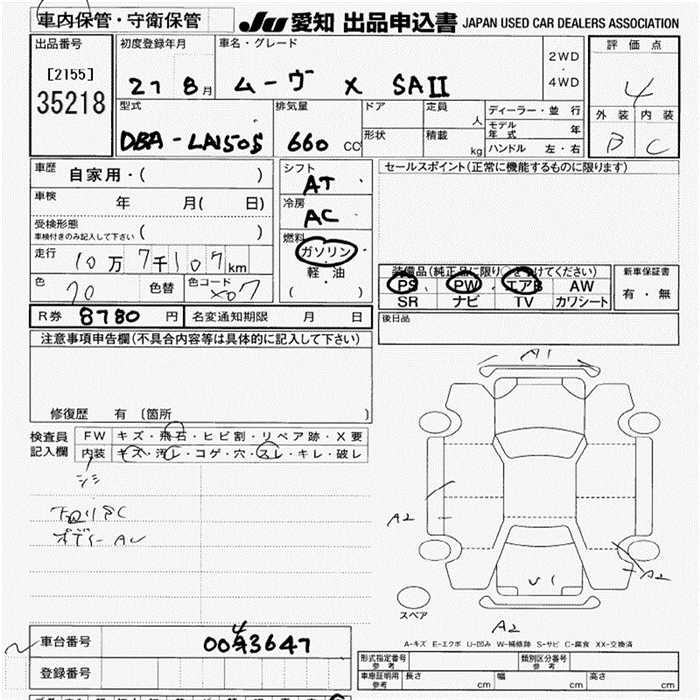 車内保管・守衛保管
JU 愛知 出品申込書 JAPAN USED CAR DEALERS ASSOCIATION
出品番号 初度登録年月 車名・グレード 2WD・4WD 評価点
[2155]
35218
21 8月 ムーヴ X SAII
4
型式 排気量 ドア 定員 人 ディーラー・並行
外装 内装
モデル年式 年
DBA-LA150S 660 CC 形状 積載 kg ハンドル 左・右
B C
車歴 自家用・( )
シフト AT
セールスポイント(正常に機能するものに限ります)
車検 年 月( 日)
冷房 AC
受検形態 車検付きのみ記入して下さい ( )
燃料 ガソリン・軽油 ( )
走行 10万7千107km
装備品(純正品に限り○を付けてください) 新車保証書
PS PW エアB AW 有・無
色 色替 色コード X07
SR ナビ TV カワシート
R券 8780円 名変通知期限 月 日
後日品
注意事項申告欄(不具合内容等は具体的に記入して下さい)
A1
修復歴 有 〔箇所 〕
検査員記入欄 FW キズ・飛石・ヒビ割・リペア跡・X要
内装 キズ・汚レ・コゲ・穴・スレ・キレ・破レ
シミ
A2
ボディー AU
A2
V1
スペア
A2
A-キズ E-エクボ U-凹み W-補修跡 S-サビ C-腐食 XX-交換済
車台番号 0043647
4
形式指定番号 参考 類別区分番号 参考
登録番号
車庫証明用 参考 長さ cm 幅 cm 高さ cm